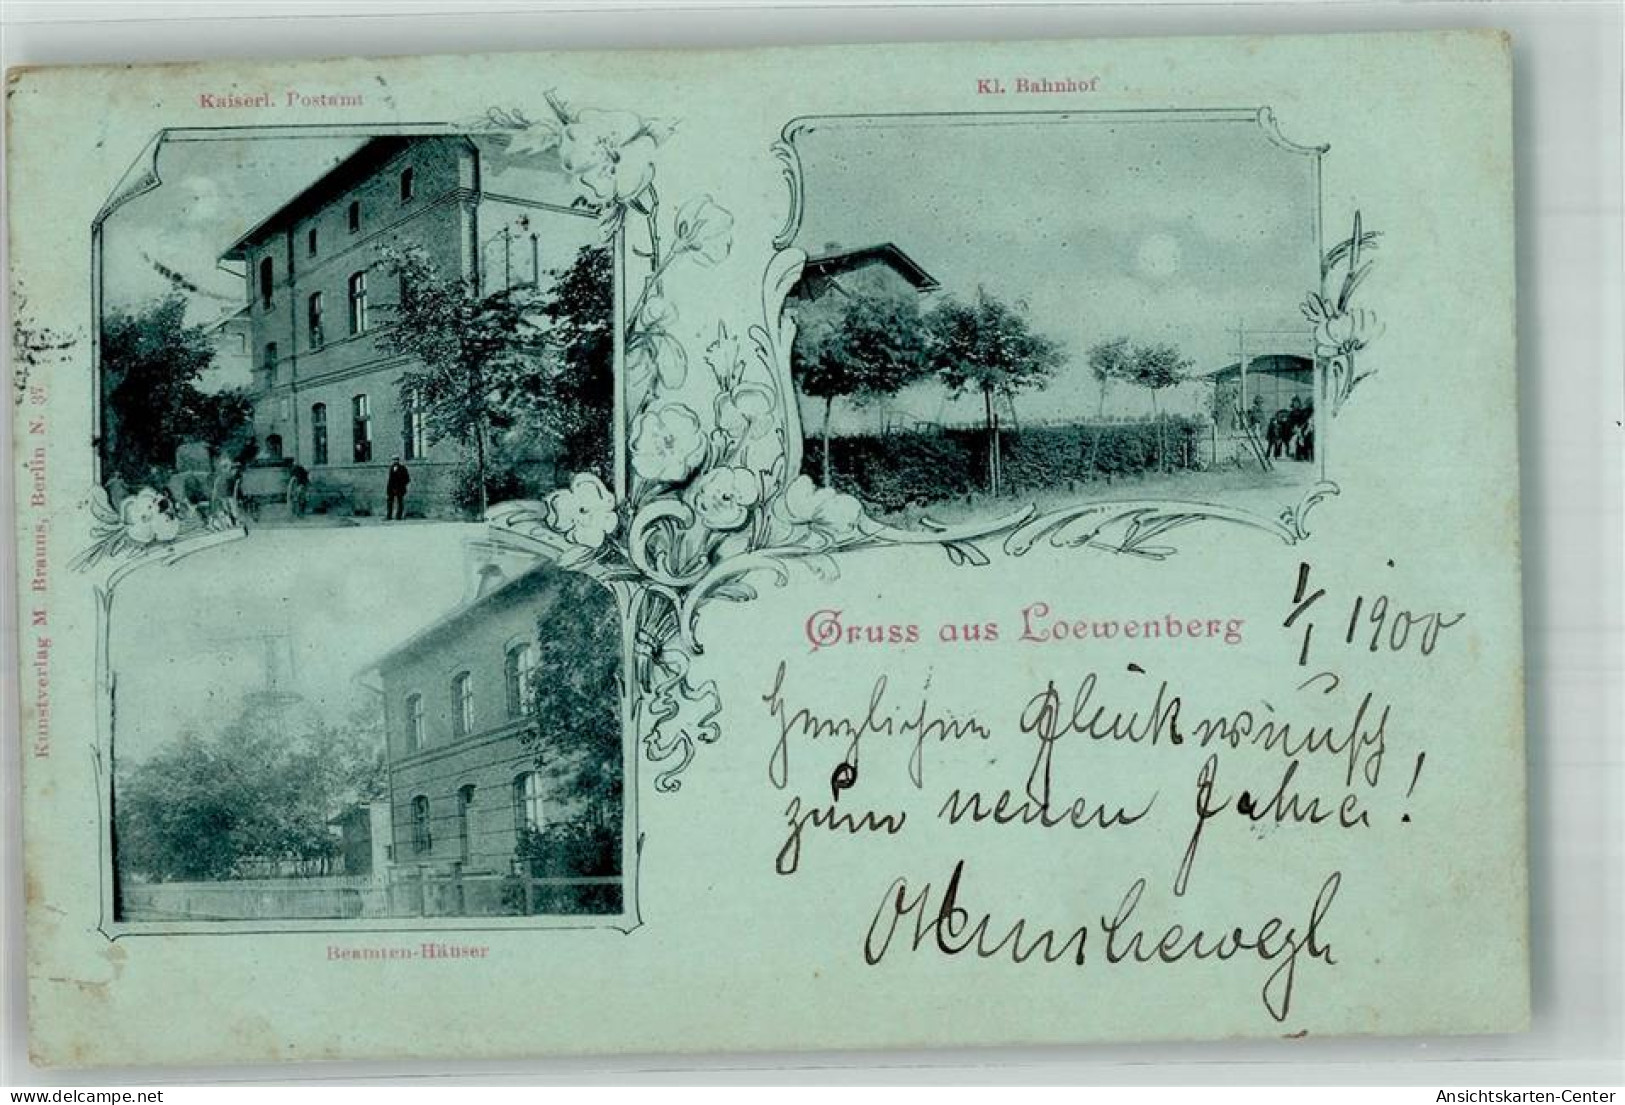 Kaiserl. Postamt
Kl. Bahnhof
Kunstverlag M Brauns, Berlin N. 37
Gruss aus Loewenberg
1/1 1900
Herzlichen Glückwunsch
zum neuen Jahre!
Beamten-Häuser
delcampe.net
Ansichtskarten-Center